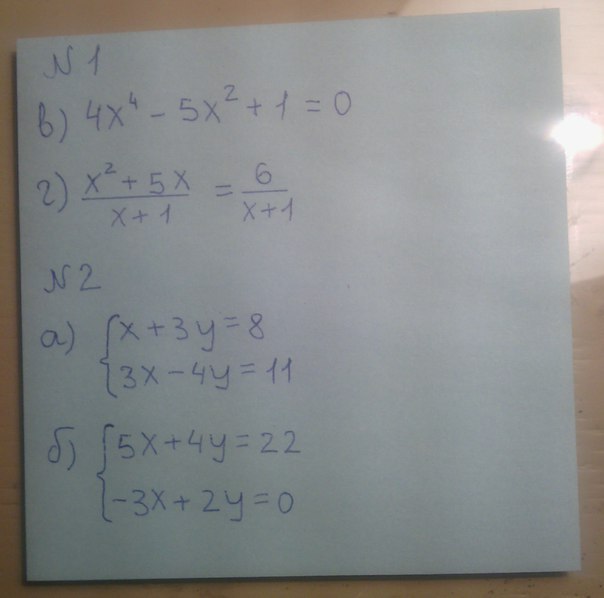 №1
в) 4x⁴ - 5x² + 1 = 0
г) (x² + 5x)/(x + 1) = 6/(x+1)
№2
а) { x + 3y = 8
3x - 4y = 11
б) { 5x + 4y = 22
-3x + 2y = 0